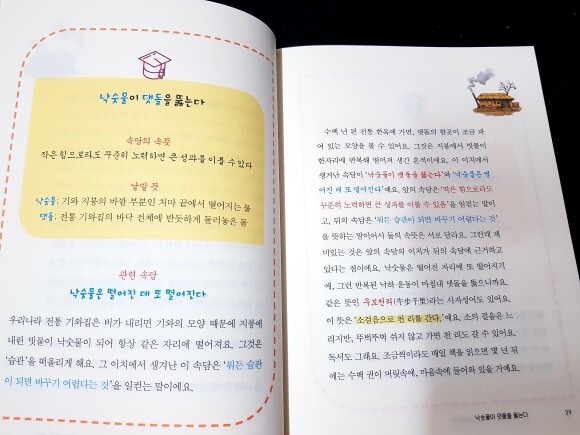 낙숫물이 댓돌을 뚫는다
속담의 속뜻
작은 힘으로라도 꾸준히 노력하면 큰 성과를 이룰 수 있다
낱말 뜻
낙숫물: 기와 지붕의 바깥 부분인 처마 끝에서 떨어지는 물
댓돌: 전통 기와집의 바닥 전체에 반듯하게 둘러놓은 돌
관련 속담
낙숫물은 떨어진 데 또 떨어진다
우리나라 전통 기와집은 비가 내리면 기와의 모양 때문에 지붕에
내린 빗물이 낙숫물이 되어 항상 같은 자리에 떨어져요. 그것은
‘습관’을 떠올리게 해요. 그 이치에서 생겨난 이 속담은 ‘뭐든 습관
이 되면 바꾸기 어렵다는 것’을 일컫는 말이에요.
수백 년 된 전통 한옥에 가면, 댓돌의 한곳이 조금 파
여 있는 모양을 볼 수 있어요. 그것은 지붕에서 빗물이
한자리에 반복해 떨어져 생긴 흔적이에요. 이 이치에서
생겨난 속담이 ‘낙숫물이 댓돌을 뚫는다’와 ‘낙숫물은 떨
어진 데 또 떨어진다’예요. 앞의 속담은 ‘작은 힘으로라도
꾸준히 노력하면 큰 성과를 이룰 수 있음’을 일컫는 말이
고, 뒤의 속담은 ‘뭐든 습관이 되면 바꾸기 어렵다는 것’
을 뜻하는 말이어서 둘의 속뜻은 서로 달라요. 그런데 재
미있는 것은 앞의 속담의 이치가 뒤의 속담에 근거하고
있다는 점이에요. 낙숫물은 떨어진 자리에 또 떨어지기
에, 그런 반복된 낙하 운동이 마침내 댓돌을 뚫으니까요.
같은 뜻인 우보천리(牛步千里)라는 사자성어도 있어요.
이 뜻은 ‘소걸음으로 천 리를 간다.’예요. 소의 걸음은 느
리지만, 뚜벅뚜벅 쉬지 않고 가면 천 리도 갈 수 있어요.
독서도 그래요. 조금씩이라도 매일 책을 읽으면 몇 년 뒤
에는 수백 권이 머릿속에, 마음속에 들어와 있을 거예요.
낙숫물이 댓돌을 뚫는다 29